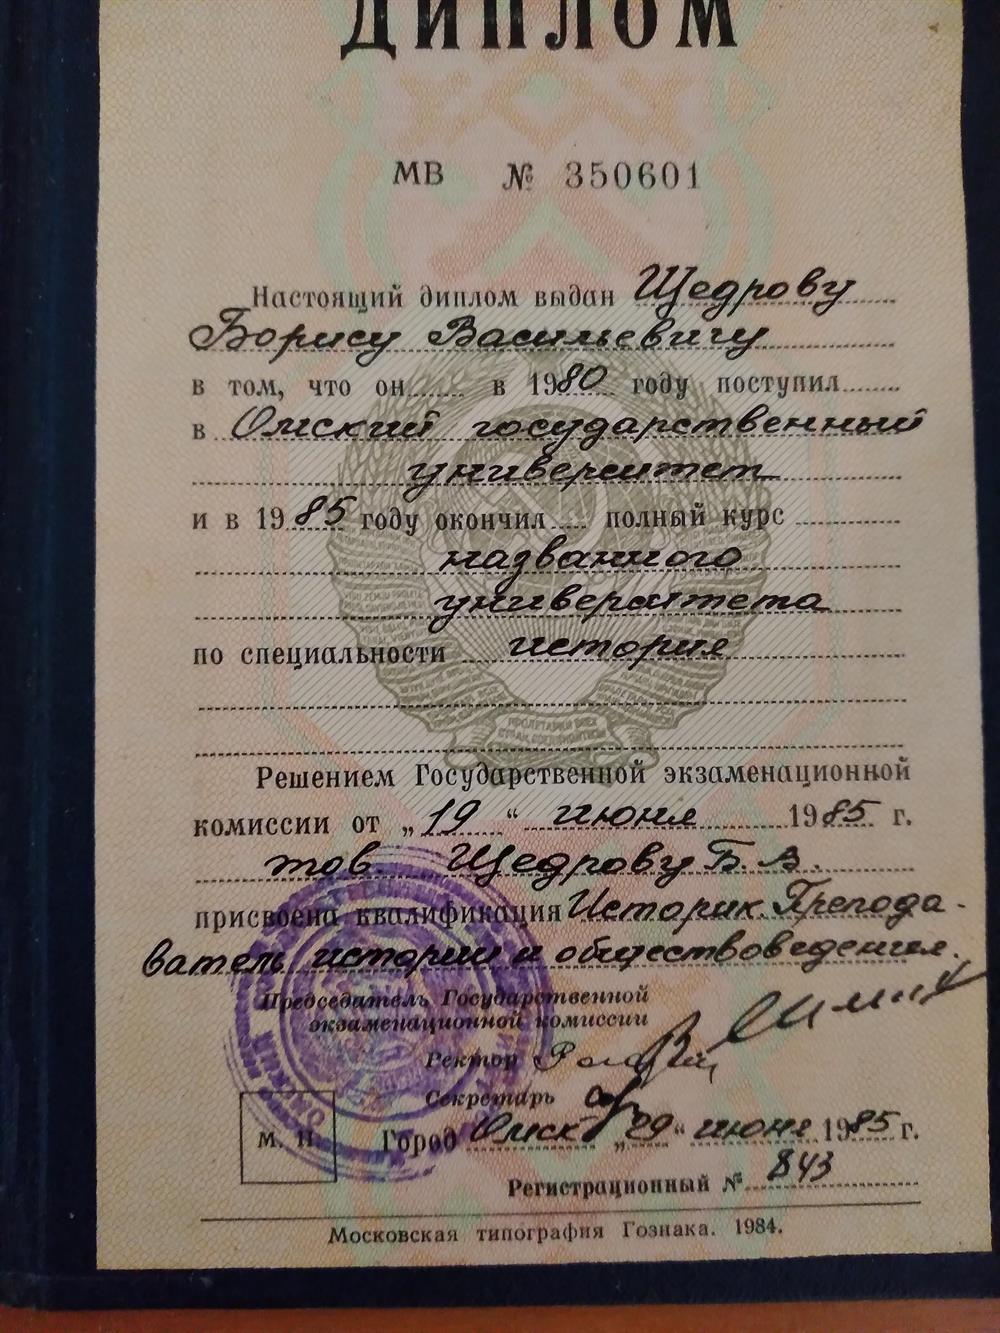 ДИПЛОМ
МВ № 350601
Настоящий диплом выдан Щедрову
Борису Васильевичу
в том, что он в 1980 году поступил
в Омский государственный
университет
и в 1985 году окончил полный курс
названного
университета
по специальности история
Решением Государственной экзаменационной
комиссии от „19“ июня 1985 г.
тов Щедрову Б. В.
присвоена квалификация Историк. Препода-
ватель истории и обществоведения.
Председатель Государственной
экзаменационной комиссии
Ректор
Секретарь
М. П. Город Омск „29“ июня 1985 г.
Регистрационный № 843
Московская типография Гознака. 1984.